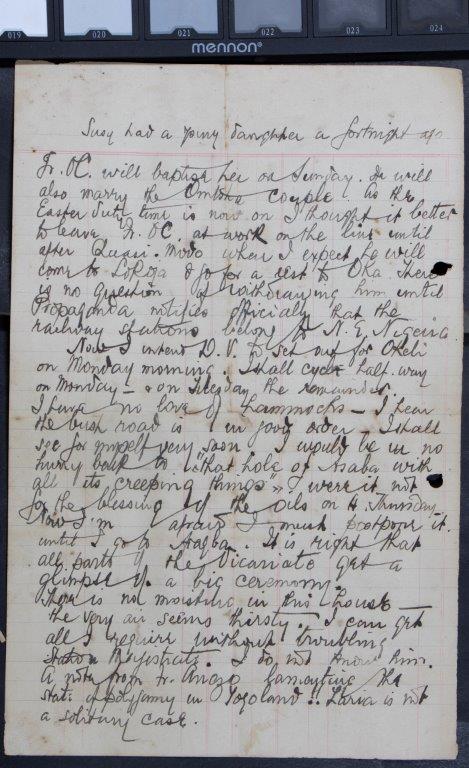 019 020 021 022 023 024
mennon®
Susy had a puny daughter a fortnight ago
Fr. OC. will baptize her on Sunday. He will
also marry the couple. As the
Easter duty time is now on I thought it better
to leave Fr. OC at work on the line until
after Quasi-modo when I expect he will
come to Lokoja & go for a rest to Oka. There
is no question of withdrawing him until
Propaganda notifies officially that the
railway stations belong to N. E. Nigeria
Now I intend D. V. to set out for Okeli
on Monday morning. I shall cycle half way
on Monday — & on Tuesday the remainder
I have no love of hammocks — I hear
the bush road is in good order. I shall
see for myself very soon. I would be in no
hurry back to "that hole of Asaba with
all its creeping things" were it not
for the blessing of the oils on H. Thursday
Now I'm afraid I must postpone it
until I go to . It is right that
all parts of the Vicariate get a
glimpse of a big ceremony.
There is no moisture in this house —
the very air seems thirsty. I can get
all I require without troubling
Station Magistrate. I do not know him.
A note from Fr. lamenting the
state of polygamy in Togoland!! is not
a solitary case.